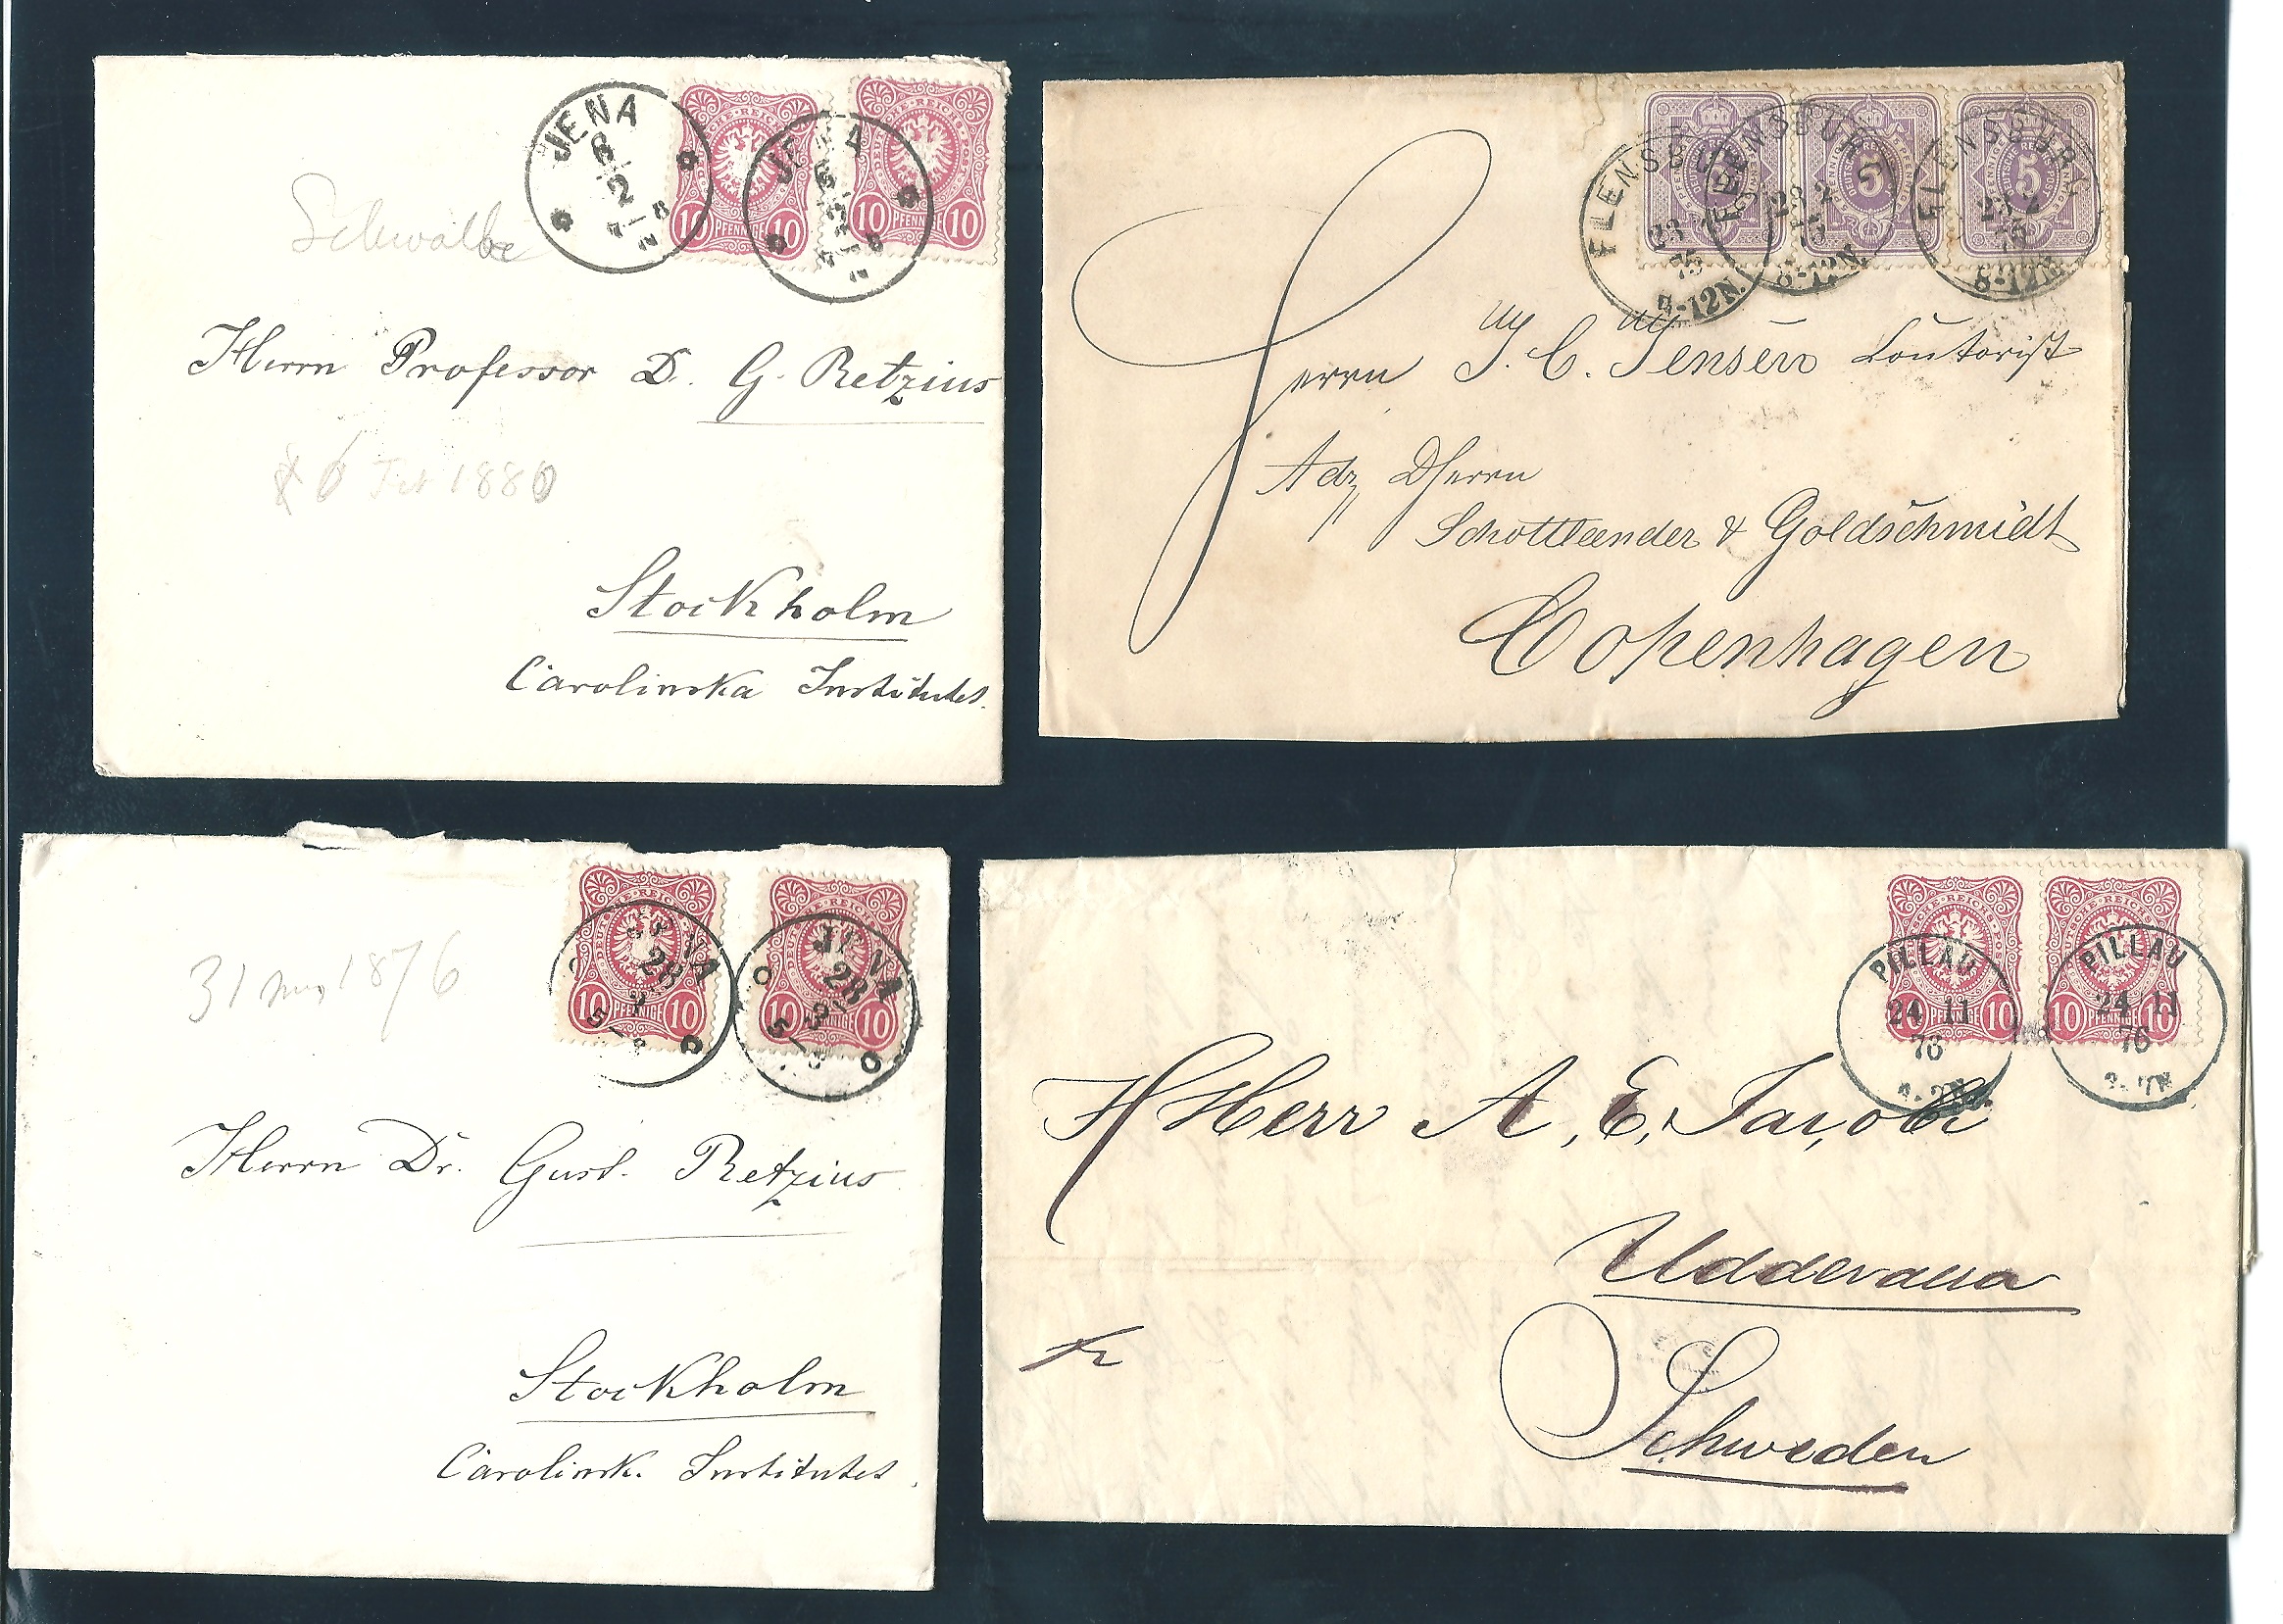 JENA
6/2
JENA
DEUTSCHE REICHS-POST
10 PFENNIGE 10
DEUTSCHE REICHS-POST
10 PFENNIGE 10
Schwalbe
Herrn Professor D. G. Retzius
1880
Stockholm
Carolinska Institutet.
FLENSBURG
23 2
75
8-12N.
FLENSBURG
23 2
75
8-12N.
FLENSBURG
23 2
75
8-12N.
5
5
5
Herrn J. C. Jensen
Adr DHerrn
Schottlaender & Goldschmidt
Copenhagen
JENA
28
JENA
28
DEUTSCHE REICHS-POST
10 PFENNIGE 10
DEUTSCHE REICHS-POST
10 PFENNIGE 10
31 1876
Herrn Dr. Gust. Retzius
Stockholm
Carolinsk. Institutet.
DEUTSCHE REICHS-POST
10 PFENNIGE 10
DEUTSCHE REICHS-POST
10 PFENNIGE 10
PILLAU
24 11
76
PILLAU
24 11
76
Herr A. E. Jacobi
Uddevalla
Schweden